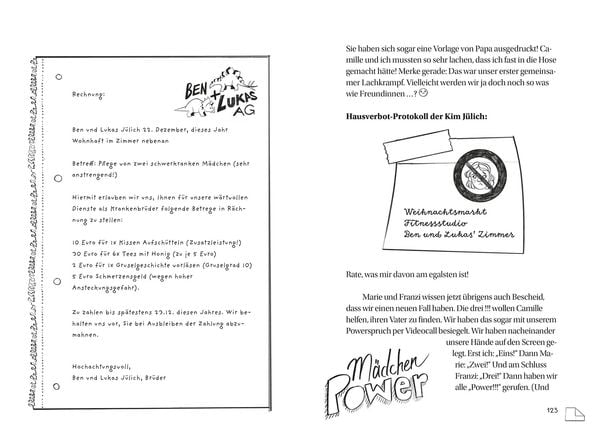 Rechnung:
BEN
+
LUKAS
AG
Ben und Lukas Jülich 22. Dezember, dieses Jahr
Wohnhaft im Zimmer nebenan
Betreff: Pflege von zwei schwerkranken Mädchen (sehr
anstrengend!)
Hiermit erlauben wir uns, Ihnen für unsere wärtvollen
Dienste als Krankenbrüder folgende Betrege in Räch-
nung zu stellen:
10 Euro für 1x Kissen Aufschütteln (Zusatzleistung!)
30 Euro für 6x Tees mit Honig (zu je 5 Euro)
2 Euro für 1x Gruselgeschichte vorläsen (Gruselgrad 10)
5 Euro Schmerzensgeld (wegen hoher
Ansteckungsgefahr).
Zu zahlen bis spätestens 29.12. diesen Jahres. Wir be-
halten uns vor, Sie bei Ausbleiben der Zahlung abzu-
mahnen.
Hochachtungsvoll,
Ben und Lukas Jülich, Brüder
Sie haben sich sogar eine Vorlage von Papa ausgedruckt! Ca-
mille und ich mussten so sehr lachen, dass ich fast in die Hose
gemacht hätte! Merke gerade: Das war unser erster gemeinsa-
mer Lachkrampf. Vielleicht werden wir ja doch noch so was
wie Freundinnen …?
Hausverbot-Protokoll der Kim Jülich:
Weihnachtsmarkt
Fitnessstudio
Ben und Lukas' Zimmer
Rate, was mir davon am egalsten ist!
Marie und Franzi wissen jetzt übrigens auch Bescheid,
dass wir einen neuen Fall haben. Die drei !!! wollen Camille
helfen, ihren Vater zu finden. Wir haben das sogar mit unserem
Powerspruch per Videocall besiegelt. Wir haben nacheinander
unsere Hände auf den Screen ge-
legt. Erst ich: „Eins!" Dann Ma-
rie: „Zwei!" Und am Schluss
Franzi: „Drei!" Dann haben wir
alle „Power!!!" gerufen. (Und
Mädchen
Power
123